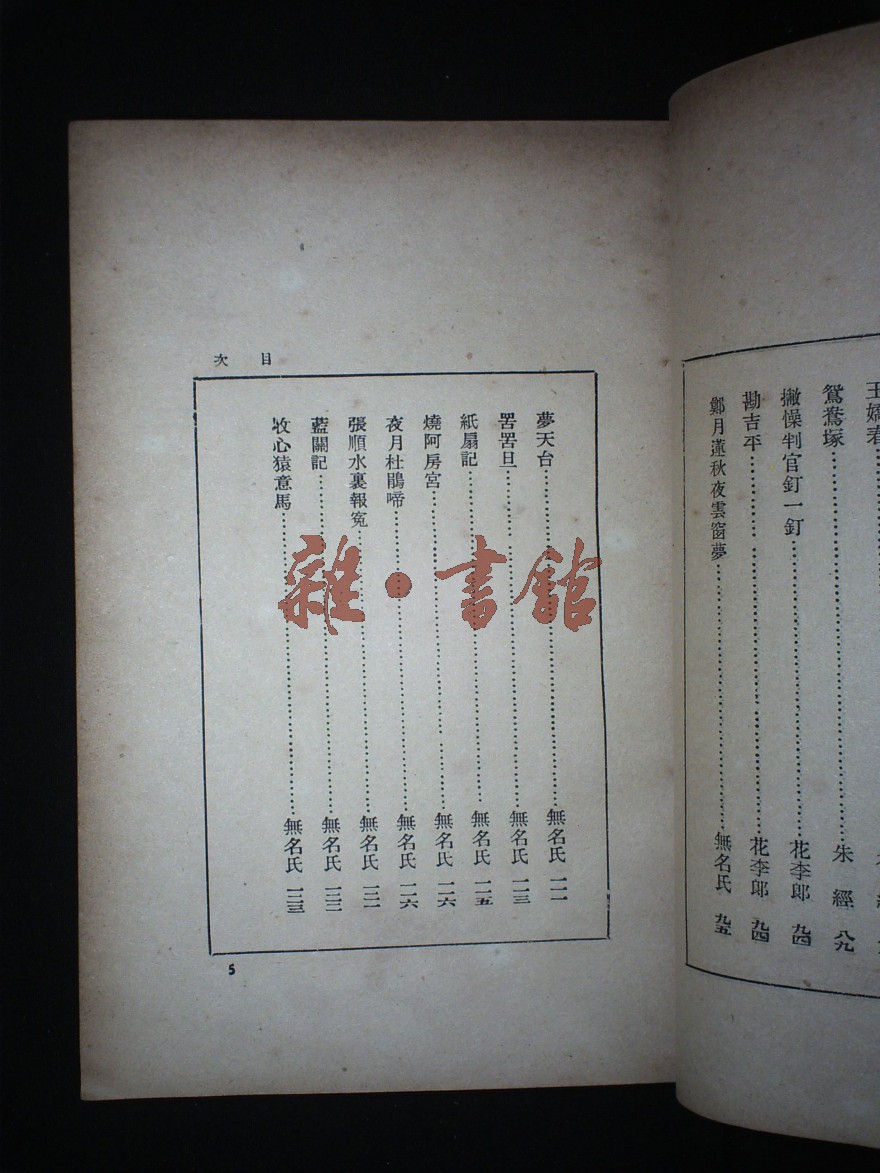 鴛鴦塚……朱經 八九
撇懆判官釘一釘……花李郎 九四
勘吉平……花李郎 九四
鄭月蓮秋夜雲窗夢……無名氏 九五
目次
夢天台……無名氏 一一一
罟罟旦……無名氏 一一三
紙扇記……無名氏 一一五
燒阿房宮……無名氏 一一六
夜月杜鵑啼……無名氏 一一六
張順水裏報寃……無名氏 一二一
藍關記……無名氏 一二二
收心猿意馬……無名氏 一二三
5
雜·書館